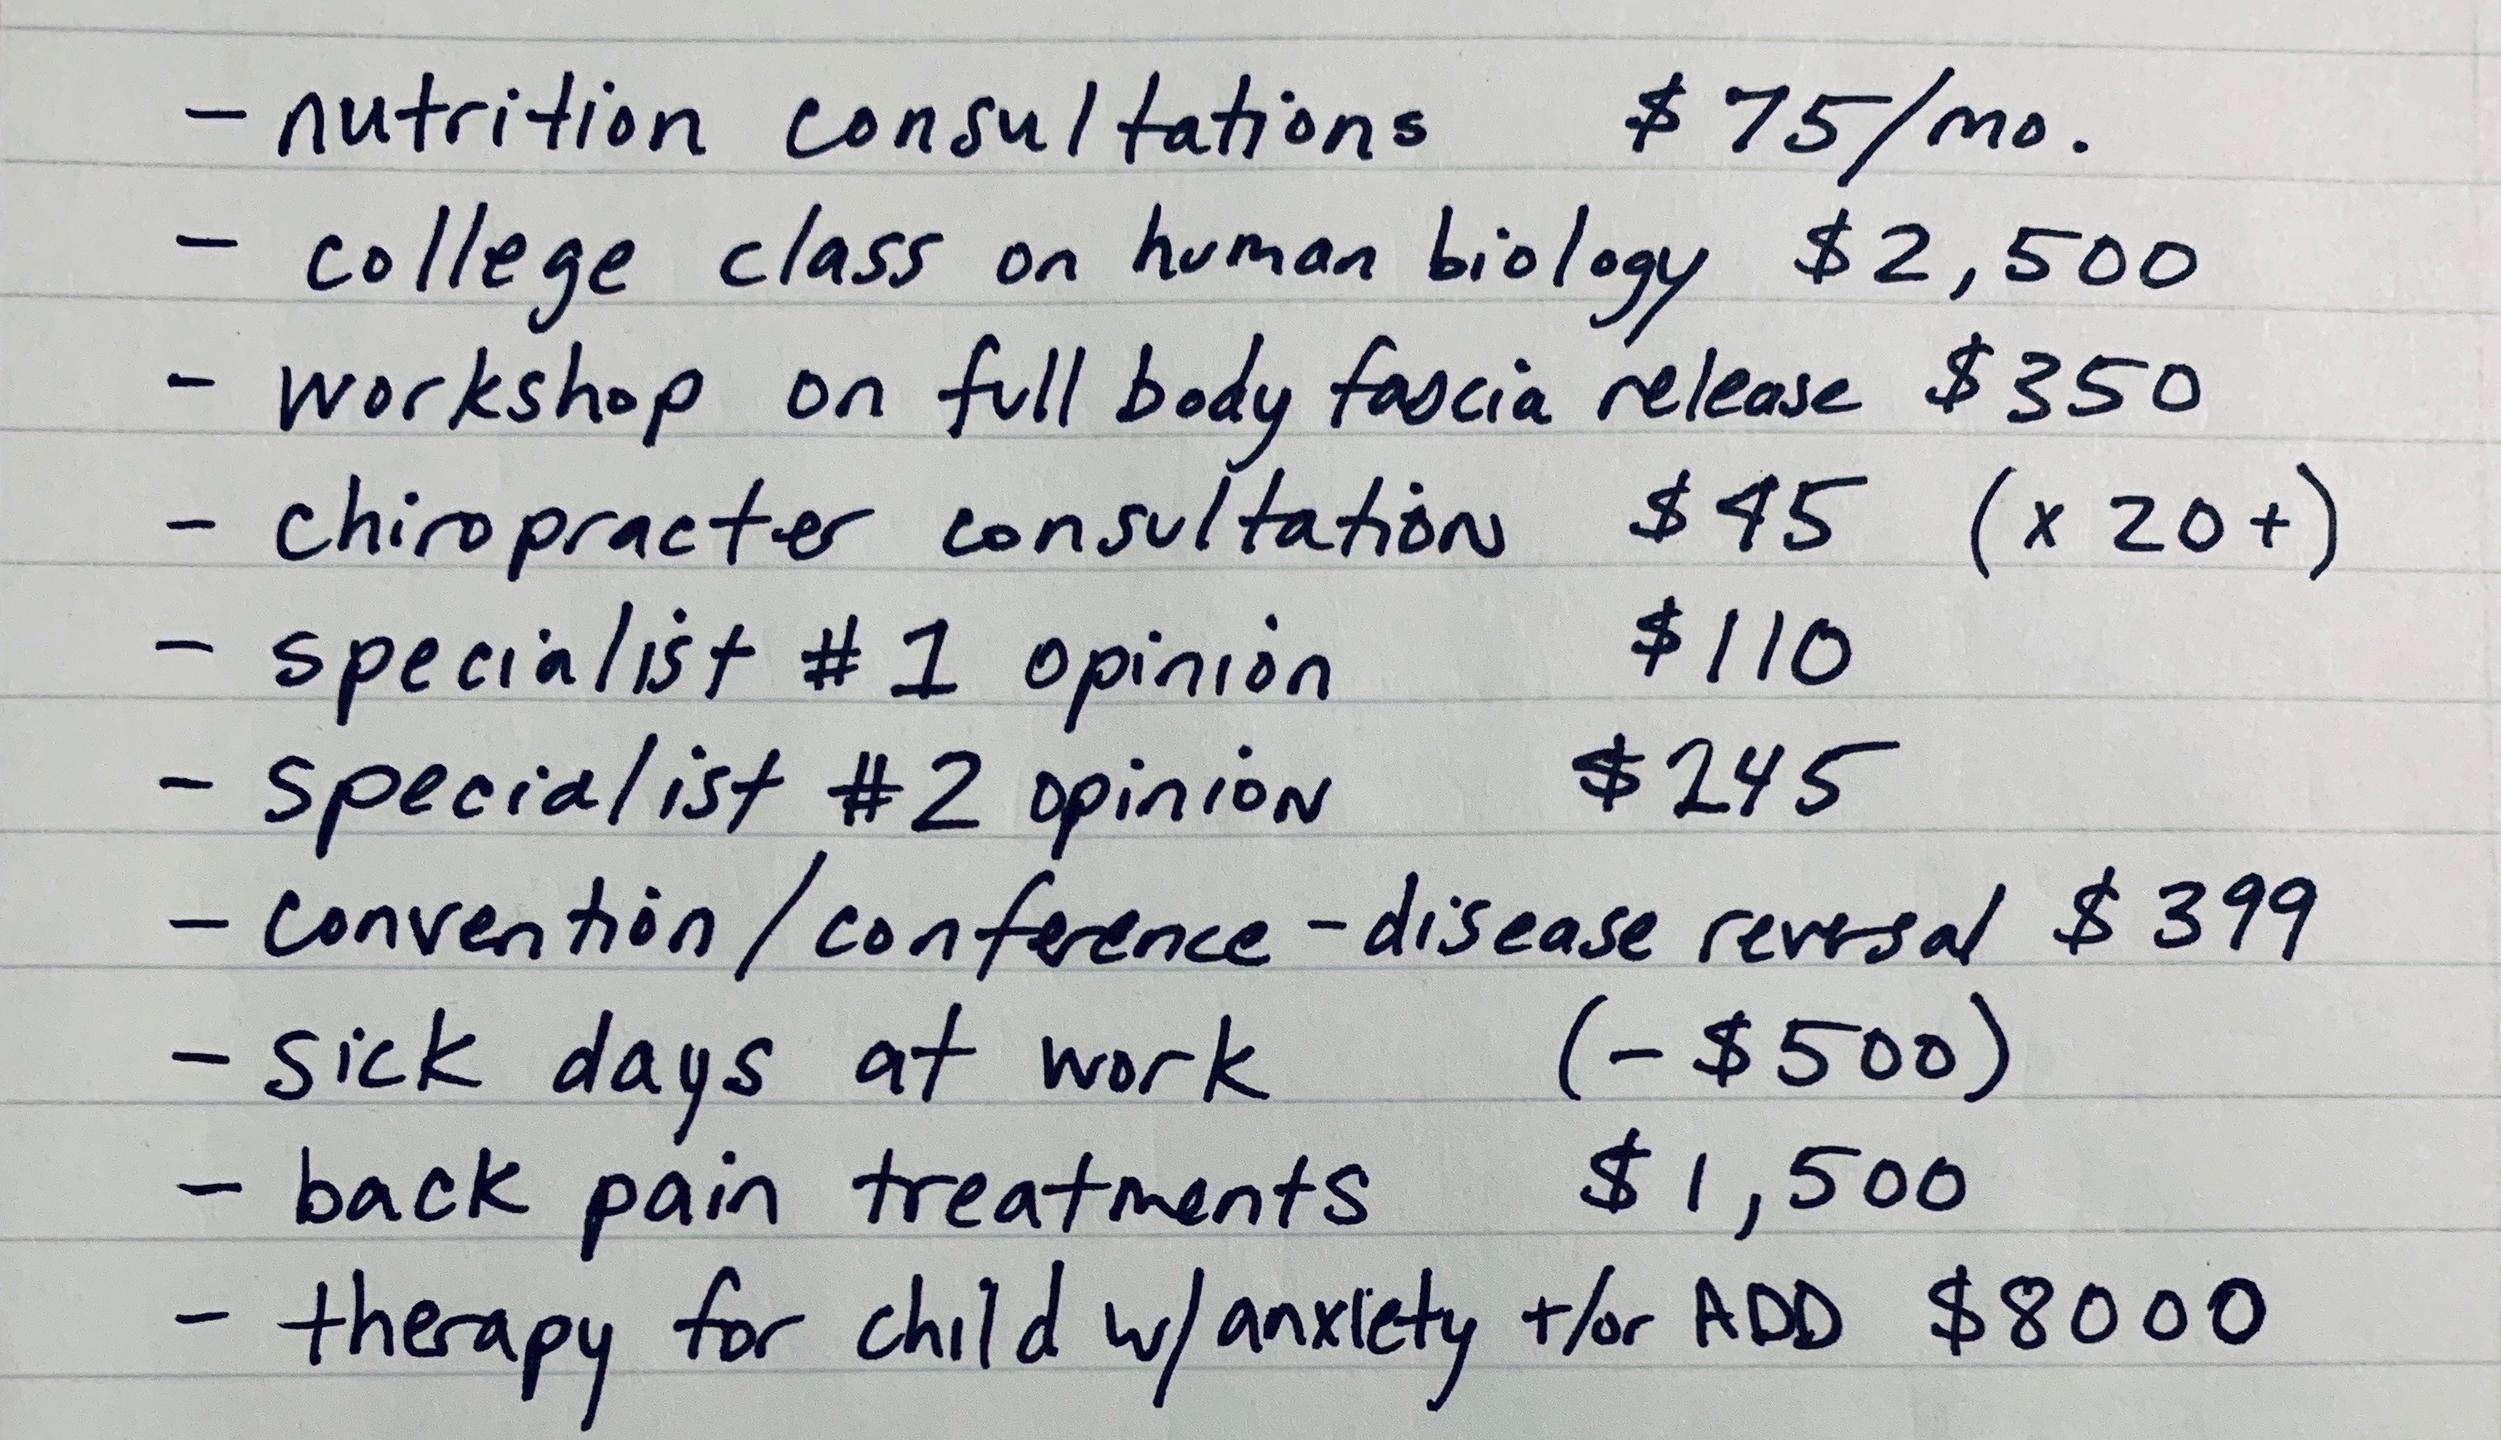 - nutrition consultations $75/mo.
- college class on human biology $2,500
- workshop on full body fascia release $350
- chiropracter consultation $45 (x 20+)
- specialist #1 opinion $110
- specialist #2 opinion $245
- convention/conference - disease reversal $399
- sick days at work (-$500)
- back pain treatments $1,500
- therapy for child w/anxiety +/or ADD $8000